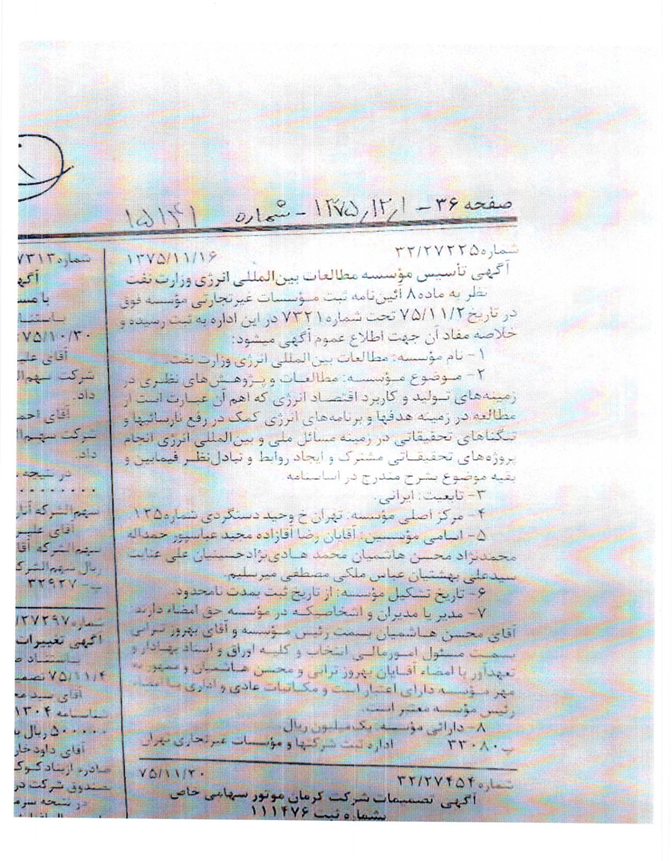 صفحه ۳۶ - ۱۳۷۵/۱۲/۱ - شماره ۱۵۱۴۱
شماره ۳۲/۲۷۲۲۵ ۱۳۷۵/۱۱/۱۶
آگهی تأسیس مؤسسه مطالعات بین‌المللی انرژی وزارت نفت
نظر به ماده ۸ آئین‌نامه ثبت مؤسسات غیرتجارتی مؤسسه فوق
در تاریخ ۷۵/۱۱/۲ تحت شماره ۷۳۲۱ در این اداره به ثبت رسیده و
خلاصه مفاد آن جهت اطلاع عموم آگهی میشود:
۱- نام مؤسسه: مطالعات بین‌المللی انرژی وزارت نفت
۲- موضوع مؤسسه: مطالعات و پژوهش‌های نظری در
زمینه‌های تولید و کاربرد اقتصاد انرژی که اهم آن عبارت است از
مطالعه در زمینه هدفها و برنامه‌های انرژی کمک در رفع نارسائیها و
تنگناهای تحقیقاتی در زمینه مسائل ملی و بین‌المللی انرژی انجام
پروژه‌های تحقیقاتی مشترک و ایجاد روابط و تبادل‌نظر فیمابین و
بقیه موضوع بشرح مندرج در اساسنامه
۳- تابعیت: ایرانی.
۴- مرکز اصلی مؤسسه: تهران خ وحید دستگردی شماره ۱۲۵
۵- اسامی مؤسسین: آقایان رضا آقازاده مجید عباسپور حمداله
محمدنژاد محسن هاشمیان محمد هادی‌نژادحسینیان علی عنایت
سیدعلی بهشتیان عباس ملکی مصطفی میرسلیم.
۶- تاریخ تشکیل مؤسسه: از تاریخ ثبت بمدت نامحدود.
۷- مدیر یا مدیران و اشخاصیکه در مؤسسه حق امضاء دارند
آقای محسن هاشمیان بسمت رئیس مؤسسه و آقای بهروز ترابی
بسمت مسئول امورمالی انتخاب و کلیه اوراق و اسناد بهادار و
تعهدآور با امضاء آقایان بهروز ترابی و محسن هاشمیان و ممهور به
مهر مؤسسه دارای اعتبار است و مکاتبات عادی و اداری با امضاء
رئیس مؤسسه معتبر است.
۸- دارائی مؤسسه: یک‌میلیون ریال
پ ۳۳۰۸۰ اداره ثبت شرکتها و مؤسسات غیرتجاری تهران
شماره ۳۲/۲۷۴۵۴ ۷۵/۱۱/۲۰
آگهی تصمیمات شرکت کرمان موتور سهامی خاص
بشماره ثبت ۱۱۱۴۷۶
شماره ۷۳۱۳
با مس
۷۵/۱۰/۳۰
آقای علی
شرکت سهم‌ال
داد.
آقای احم
شرکت سهم‌ال
داد.
در نتیجه
سهم‌الشرکه آنا
آقای علی
سهم‌الشرکه آقا
ریال سهم‌الشرک
پ ۳۲۹۲۷
شماره ۲۷۲۹۷
آگهی تغییرات
۷۵/۱۱/۴ تصم
آقای سید مح
شناسنامه ۱۳۰۴
۵۰۰۰۰۰ ریال به
آقای داود خار
صندوق شرکت در
در نتیجه سرم